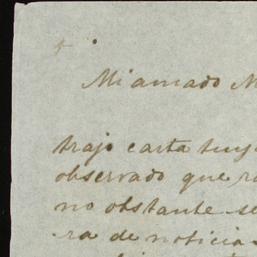 Mi amado M
trajo carta tuya
observado que r
no obstante se
ra de noticia